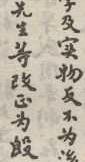 及实物反不为
先生等改正为殷